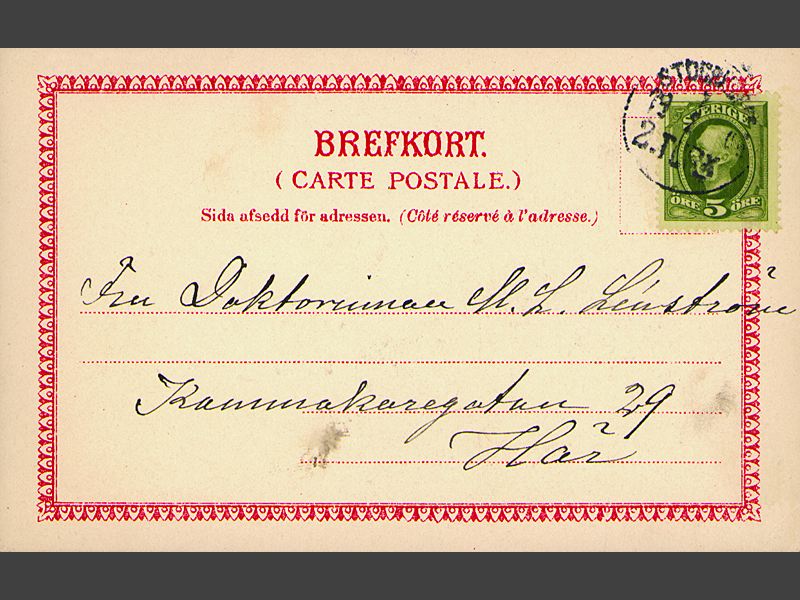 BREFKORT.
(CARTE POSTALE.)
Sida afsedd för adressen. (Côté réservé à l'adresse.)
SVERIGE
ÖRE 5 ÖRE
Fru Doktorinnan M. L.
Kammakaregatan 29
Här